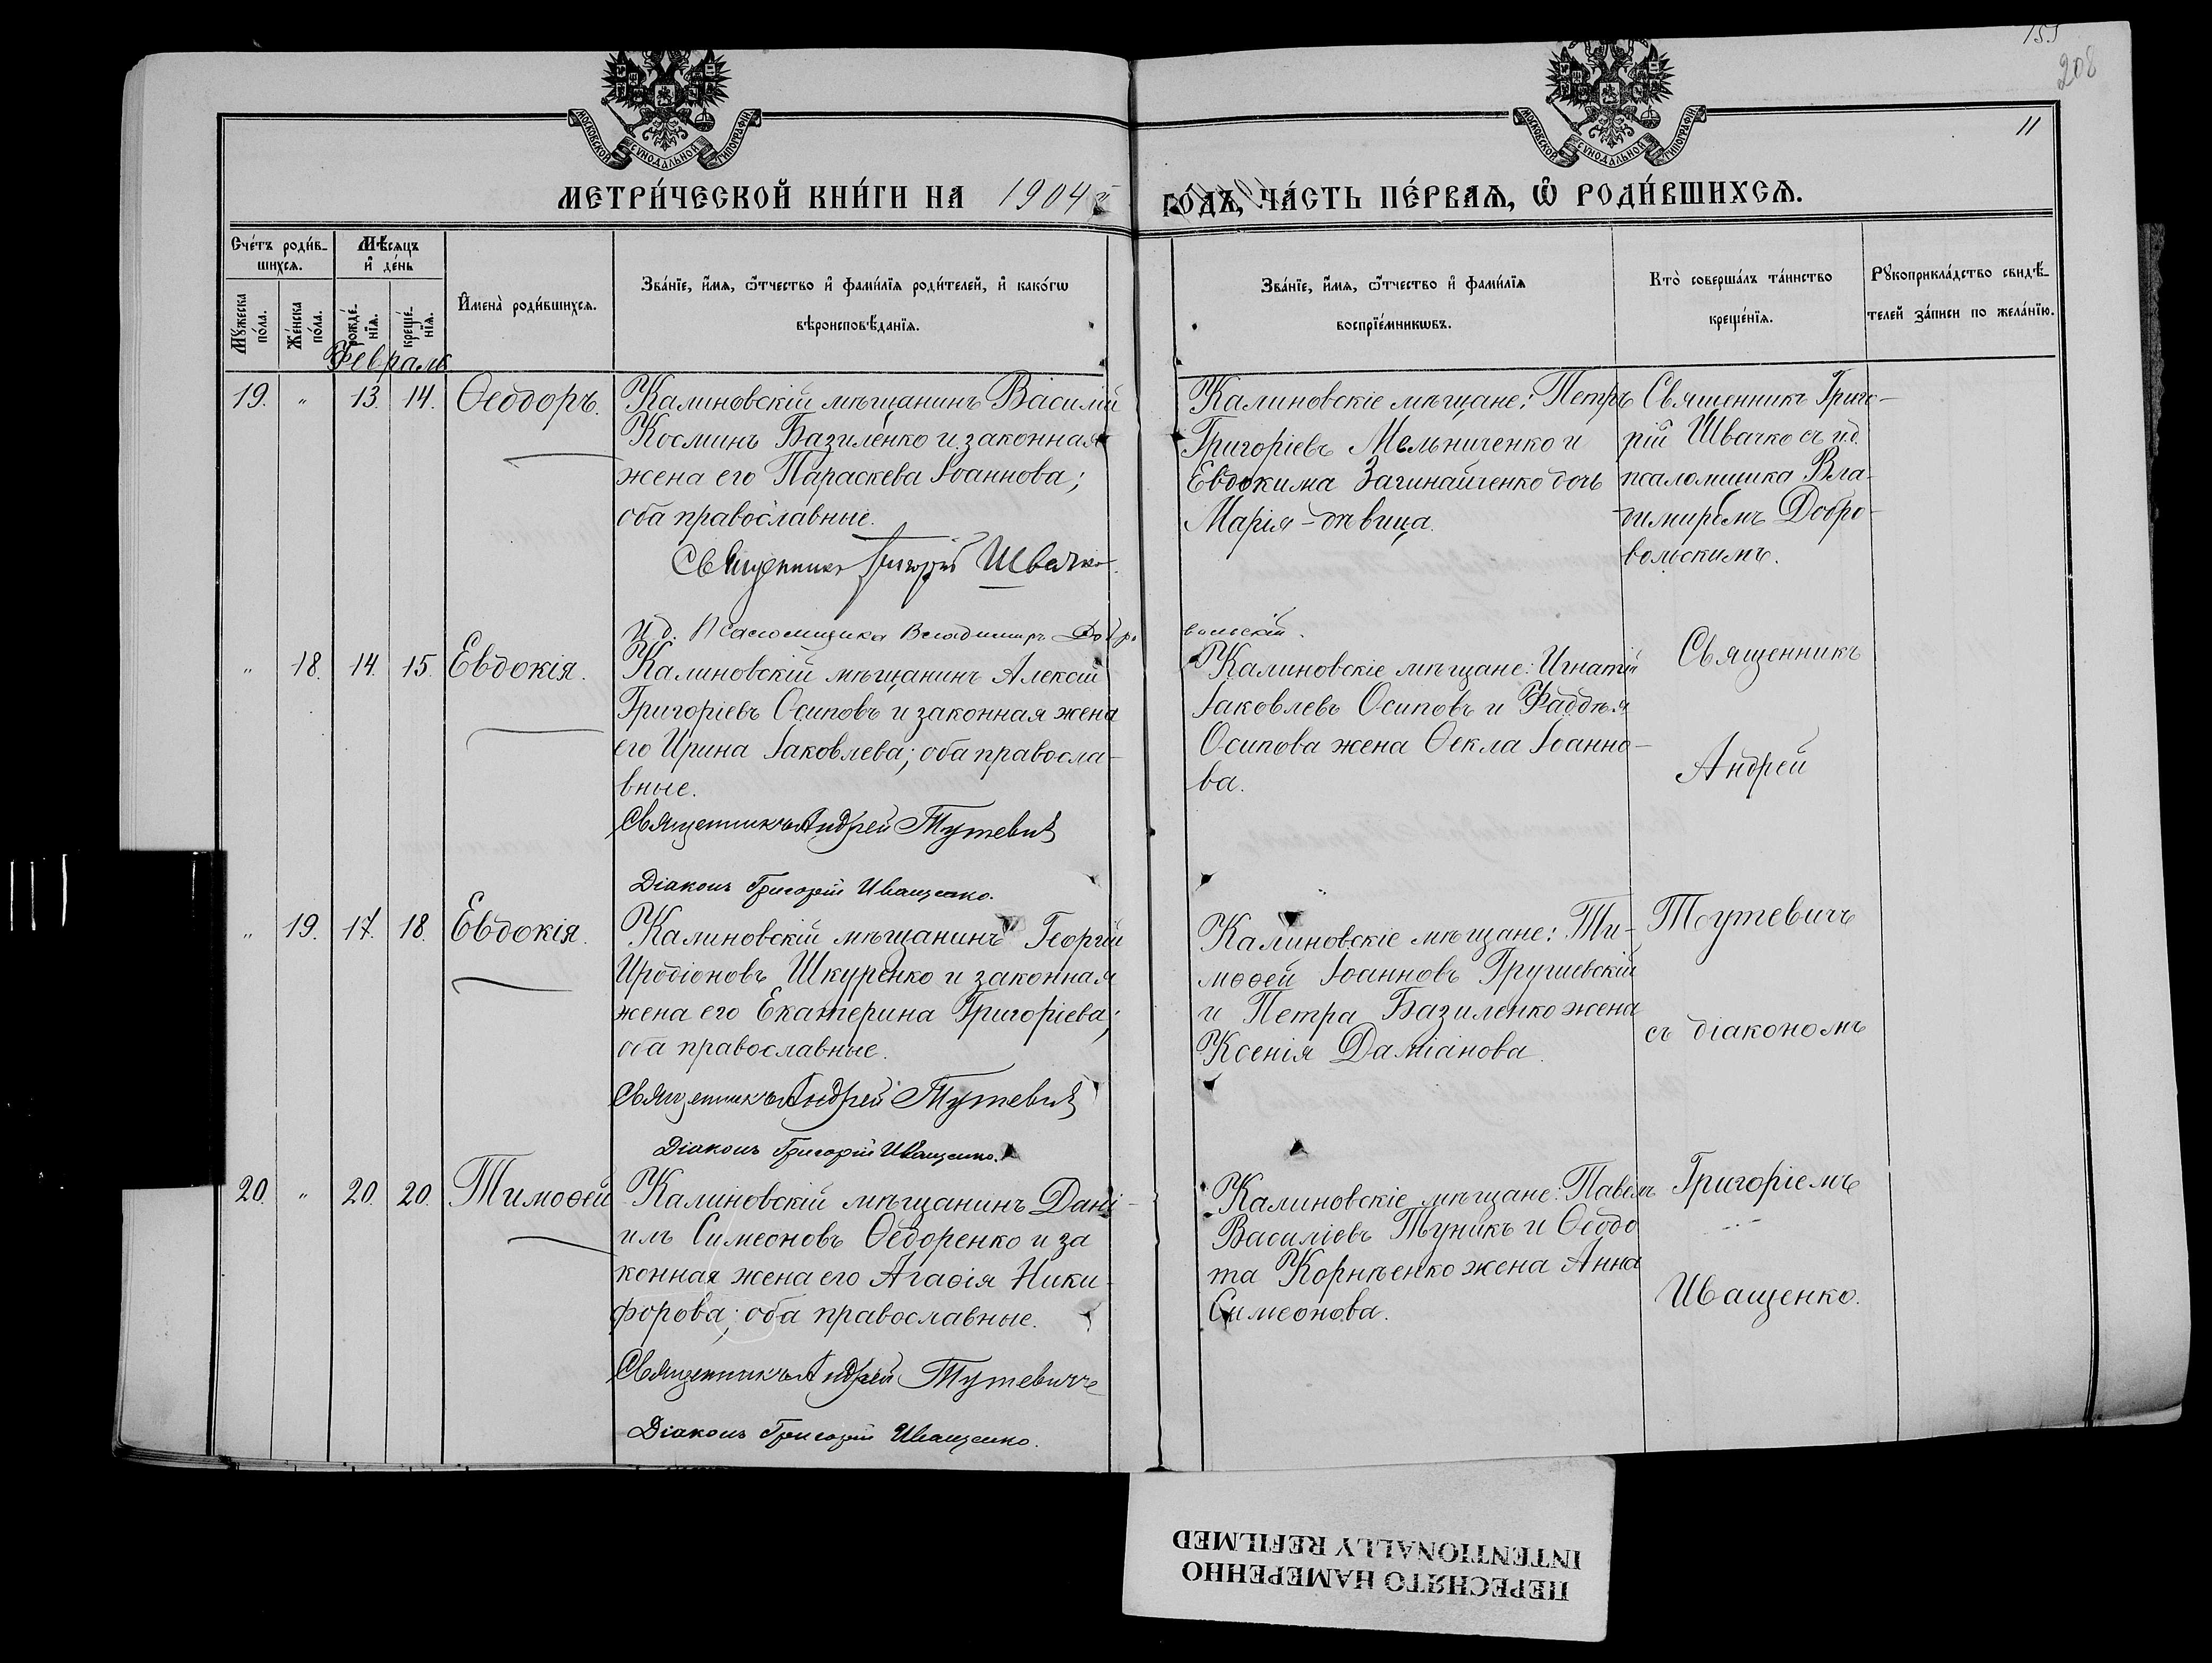 155
208
11
МОСКОВСКОЙ СѴНОДАЛЬНОЙ ТИПОГРАФІИ
МОСКОВСКОЙ СѴНОДАЛЬНОЙ ТИПОГРАФІИ
МЕТРИ́ЧЕСКОЙ КНИ́ГИ НА 1904 г
ГО́ДЪ, ЧА́СТЬ ПЕ́РВАѦ, Ѽ РОДИ́ВШИХСѦ.
Сче́тъ роди́в-
шихсѧ.
Мѣ́сѧцъ
и҆ де́нь
Мꙋ́жеска по́ла.
Же́нска по́ла.
рожде́-
нїѧ.
креще́-
нїѧ.
И҆мена̀ роди́вшихсѧ.
Зва́нїе, и҆́мѧ, ѻ҆́тчество и҆ фами́лїѧ роди́телей, и҆ како́гѡ
вѣроисповѣ́данїѧ.
Зва́нїе, и҆́мѧ, ѻ҆́тчество и҆ фами́лїѧ
воспрїе́мникѡвъ.
Кто̀ соверша́лъ та́инство
креще́нїѧ.
Рꙋкоприкла́дство свидѣ́-
телей за́писи по жела́нїю.
Февраль
19. " 13. 14. Ѳеодоръ.
Калиновскій мѣщанинъ Василій
Косминъ Базиленко и законная
жена его Параскева Іоаннова;
оба православные.
Священникъ Григорій Швачко.
И. д. Псаломщика Владимиръ Добро
вольскій.
Калиновскіе мѣщане: Петръ
Григоріевъ Мельниченко и
Евдокима Загинайченко дочь
Марія - дѣвица.
Священникъ Григо-
рій Швачко съ и.д.
псаломщика Вла-
димиромъ Добро-
вольскимъ.
" 18. 14. 15. Евдокія.
Калиновскій мѣщанинъ Алексій
Григоріевъ Осиповъ и законная жена
его Ирина Іаковлева; оба правосла-
вные.
Священникъ Андрей Тутевичъ
Діаконъ Григорій Иващенко.
Калиновскіе мѣщане: Игнатій
Іаковлевъ Осиповъ и Фаддѣя
Осипова жена Ѳекла Іоанно-
ва.
Священникъ
Андрей
" 19. 17. 18. Евдокія.
Калиновскій мѣщанинъ Георгій
Иродіоновъ Шкуренко и законная
жена его Екатерина Григоріева;
оба православные.
Священникъ Андрей Тутевичъ
Діаконъ Григорій Иващенко.
Калиновскіе мѣщане: Ти-
моѳей Іоанновъ Грушевскій
и Петра Базиленко жена
Ксенія Даміанова.
Тутевичъ
съ діакономъ
20. " 20. 20. Тимоѳей
Калиновскій мѣщанинъ Дані-
илъ Симеоновъ Ѳедоренко и за
конная жена его Агаѳія Ники-
форова; оба православные.
Священникъ Андрей Тутевичъ
Діаконъ Григорій Иващенко.
Калиновскіе мѣщане: Павелъ
Василіевъ Туникъ и Ѳеодо
та Корнѣенко жена Анна
Симеонова.
Григоріемъ
Иващенко.
ПЕРЕСНЯТО НАМЕРЕННО
INTENTIONALLY REFILMED